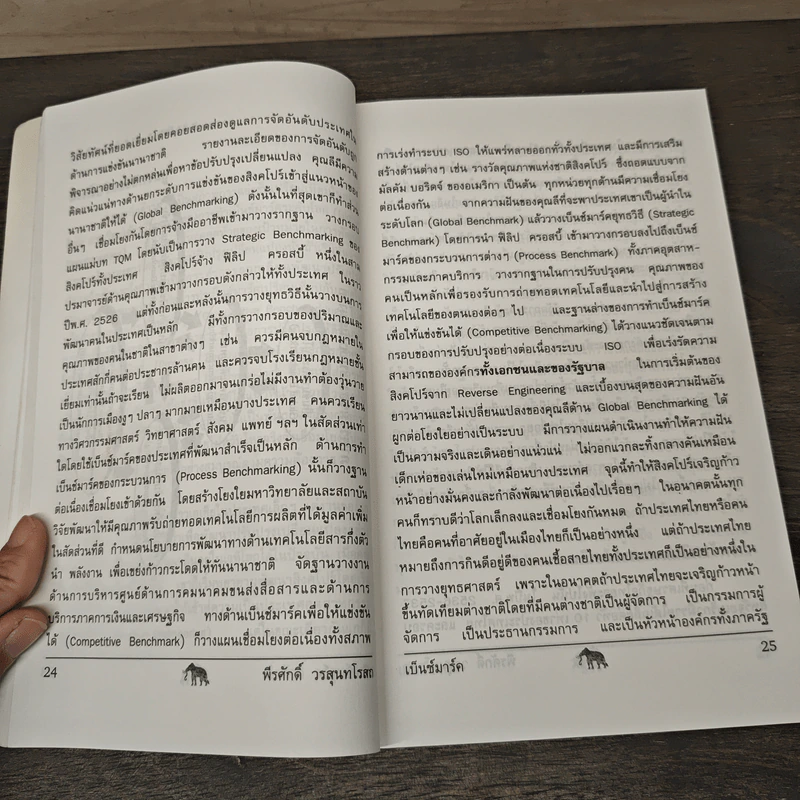 วิสัยทัศน์ที่ยอดเยี่ยมโดยคอยสอดส่องดูแลการจัดอันดับประเทศใน
ด้านการแข่งขันนานาชาติ รายงานละเอียดของการจัดอันดับถูก
พิจารณาอย่างไม่ตกหล่นเพื่อหาข้อปรับปรุงเปลี่ยนแปลง คุณลีมีความ
คิดแน่วแน่ทางด้านยกระดับการแข่งขันของสิงคโปร์เข้าสู่แนวหน้าของ
นานาชาติให้ได้ (Global Benchmarking) ดังนั้นในที่สุดเขาก็ทำส่วน
อื่นๆ เชื่อมโยงกันโดยการจ้างมืออาชีพเข้ามาวางรากฐาน วางกรอบ
แผนแม่บท TQM โดยนับเป็นการวาง Strategic Benchmarking ของ
สิงคโปร์ทั้งประเทศ สิงคโปร์จ้าง ฟิลิป ครอสบี้ หนึ่งในสาม
ปรมาจารย์ด้านคุณภาพเข้ามาวางกรอบดังกล่าวให้ทั้งประเทศ ในราว
ปีพ.ศ. 2526 แต่ทั้งก่อนและหลังนั้นการวางยุทธวิธีนั้นวางบนการ
พัฒนาคนในประเทศเป็นหลัก มีทั้งการวางกรอบของปริมาณและ
คุณภาพของคนในชาติในสาขาต่างๆ เช่น ควรมีคนจบกฎหมายใน
ประเทศสักกี่คนต่อประชากรล้านคน และควรจบโรงเรียนกฎหมายชั้น
เยี่ยมเท่านั้นถ้าจะเรียน ไม่ผลิตออกมาจนเกร่อไม่มีงานทำต้องวุ่นวาย
เป็นนักการเมืองงูๆ ปลาๆ มากมายเหมือนบางประเทศ คนควรเรียน
ทางวิศวกรรมศาสตร์ วิทยาศาสตร์ สังคม แพทย์ ฯลฯ ในสัดส่วนเท่า
ใดโดยใช้เบ็นช์มาร์คของประเทศที่พัฒนาสำเร็จเป็นหลัก ด้านการทำ
เบ็นช์มาร์คของกระบวนการ (Process Benchmarking) นั้นก็วางฐาน
ต่อเนื่องเชื่อมโยงเข้าด้วยกัน โดยสร้างโยงใยมหาวิทยาลัยและสถาบัน
วิจัยพัฒนาให้มีคุณภาพรับถ่ายทอดเทคโนโลยีการผลิตที่ได้มูลค่าเพิ่ม
ในสัดส่วนที่ดี กำหนดนโยบายการพัฒนาทางด้านเทคโนโลยีสารกึ่งตัว
นำ พลังงาน เพื่อเขย่งก้าวกระโดดให้ทันนานาชาติ จัดฐานวางงาน
ด้านการบริหารศูนย์ด้านการคมนาคมขนส่งสื่อสารและด้านการ
บริการภาคการเงินและเศรษฐกิจ ทางด้านเบ็นช์มาร์คเพื่อให้แข่งขัน
ได้ (Competitive Benchmark) ก็วางแผนเชื่อมโยงต่อเนื่องทั้งสภาพ
24 พีรศักดิ์ วรสุนทโรสถ
การเร่งทำระบบ ISO ให้แพร่หลายออกทั่วทั้งประเทศ และมีการเสริม
สร้างด้านต่างๆ เช่น รางวัลคุณภาพแห่งชาติสิงคโปร์ ซึ่งถอดแบบจาก
มัลคัม บอริดจ์ ของอเมริกา เป็นต้น ทุกหน่วยทุกด้านมีความเชื่อมโยง
ต่อเนื่องกัน จากความฝันของคุณลีที่จะพาประเทศเขาเป็นผู้นำใน
ระดับโลก (Global Benchmark) แล้ววางเบ็นช์มาร์คยุทธวิธี (Strategic
Benchmark) โดยการนำ ฟิลิป ครอสบี้ เข้ามาวางกรอบลงไปถึงเบ็นช์
มาร์คของกระบวนการต่างๆ (Process Benchmark) ทั้งภาคอุตสาห-
กรรมและภาคบริการ วางรากฐานในการปรับปรุงคน คุณภาพของ
คนเป็นหลักเพื่อรองรับการถ่ายทอดเทคโนโลยีและนำไปสู่การสร้าง
เทคโนโลยีของตนเองต่อๆ ไป และฐานล่างของการทำเบ็นช์มาร์ค
เพื่อให้แข่งขันได้ (Competitive Benchmarking) ได้วางแนวชัดเจนตาม
กรอบของการปรับปรุงอย่างต่อเนื่องระบบ ISO เพื่อเร่งรัดความ
สามารถขององค์กรทั้งเอกชนและของรัฐบาล ในการเริ่มต้นของ
สิงคโปร์จาก Reverse Engineering และเบื้องบนสุดของความฝันอัน
ยาวนานและไม่เปลี่ยนแปลงของคุณลีด้าน Global Benchmarking ได้
ผูกต่อโยงใยอย่างเป็นระบบ มีการวางแผนดำเนินงานทำให้ความฝัน
เป็นความจริงและเดินอย่างแน่วแน่ ไม่วอกแวกละทิ้งกลางคันเหมือน
เด็กเห่อของเล่นใหม่เหมือนบางประเทศ จุดนี้ทำให้สิงคโปร์เจริญก้าว
หน้าอย่างมั่นคงและกำลังพัฒนาต่อเนื่องไปเรื่อยๆ ในอนาคตนั้นทุก
คนก็ทราบดีว่าโลกเล็กลงและเชื่อมโยงกันหมด ถ้าประเทศไทยหรือคน
ไทยคือคนที่อาศัยอยู่ในเมืองไทยก็เป็นอย่างหนึ่ง แต่ถ้าประเทศไทย
หมายถึงการกินดีอยู่ดีของคนเชื้อสายไทยทั้งประเทศก็เป็นอย่างหนึ่งใน
การวางยุทธศาสตร์ เพราะในอนาคตถ้าประเทศไทยจะเจริญก้าวหน้า
ขึ้นทัดเทียมต่างชาติโดยที่มีคนต่างชาติเป็นผู้จัดการ เป็นกรรมการผู้
จัดการ เป็นประธานกรรมการ และเป็นหัวหน้าองค์กรทั้งภาครัฐ
เบ็นช์มาร์ค 25